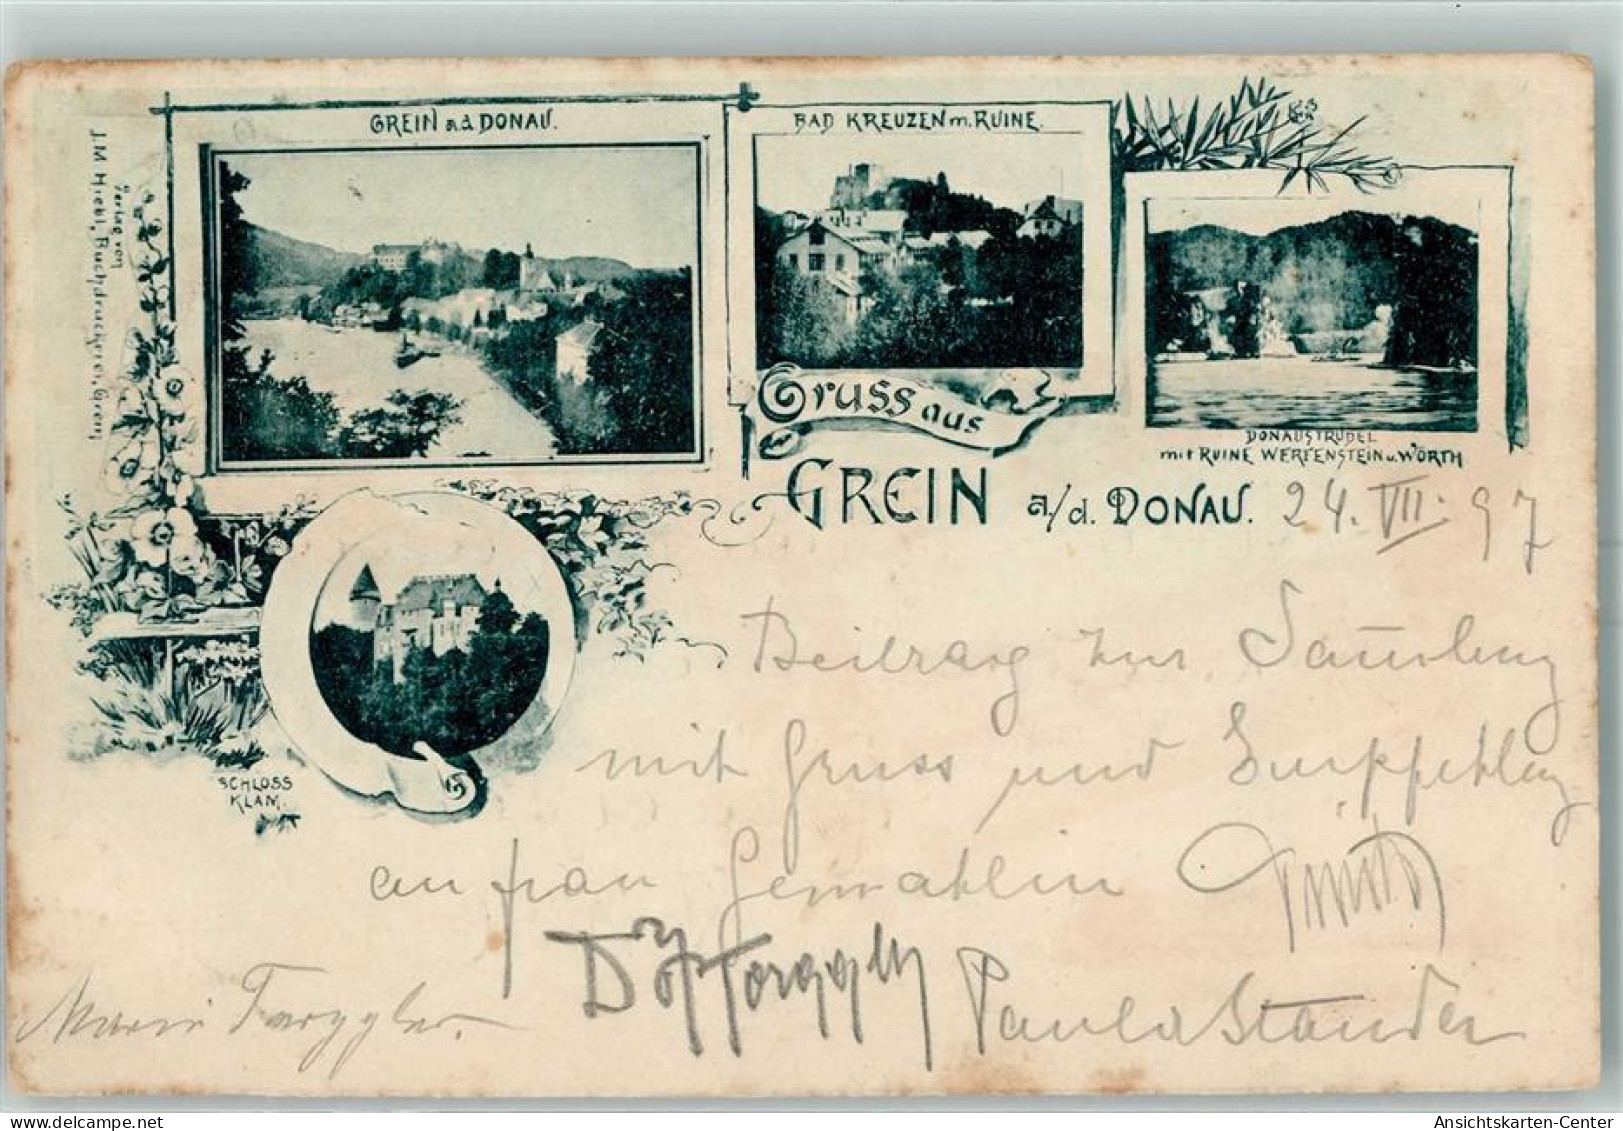 GREIN a.d. DONAU.
BAD KREUZEN m. RUINE.
Verlag von
J. M. Hiebl, Buchdruckerei, Grein
Gruss aus
GREIN a/d. DONAU.
DONAUSTRUDEL
mit RUINE WERFENSTEIN u. WÖRTH
24. VII. 97
SCHLOSS
KLAM.
Beitrag zur Samlung
mit Gruss und Empfehlung
an frau Gemahlin
Marie Torggler.
Torggler
Paula Stauder
Ansichtskarten-Center